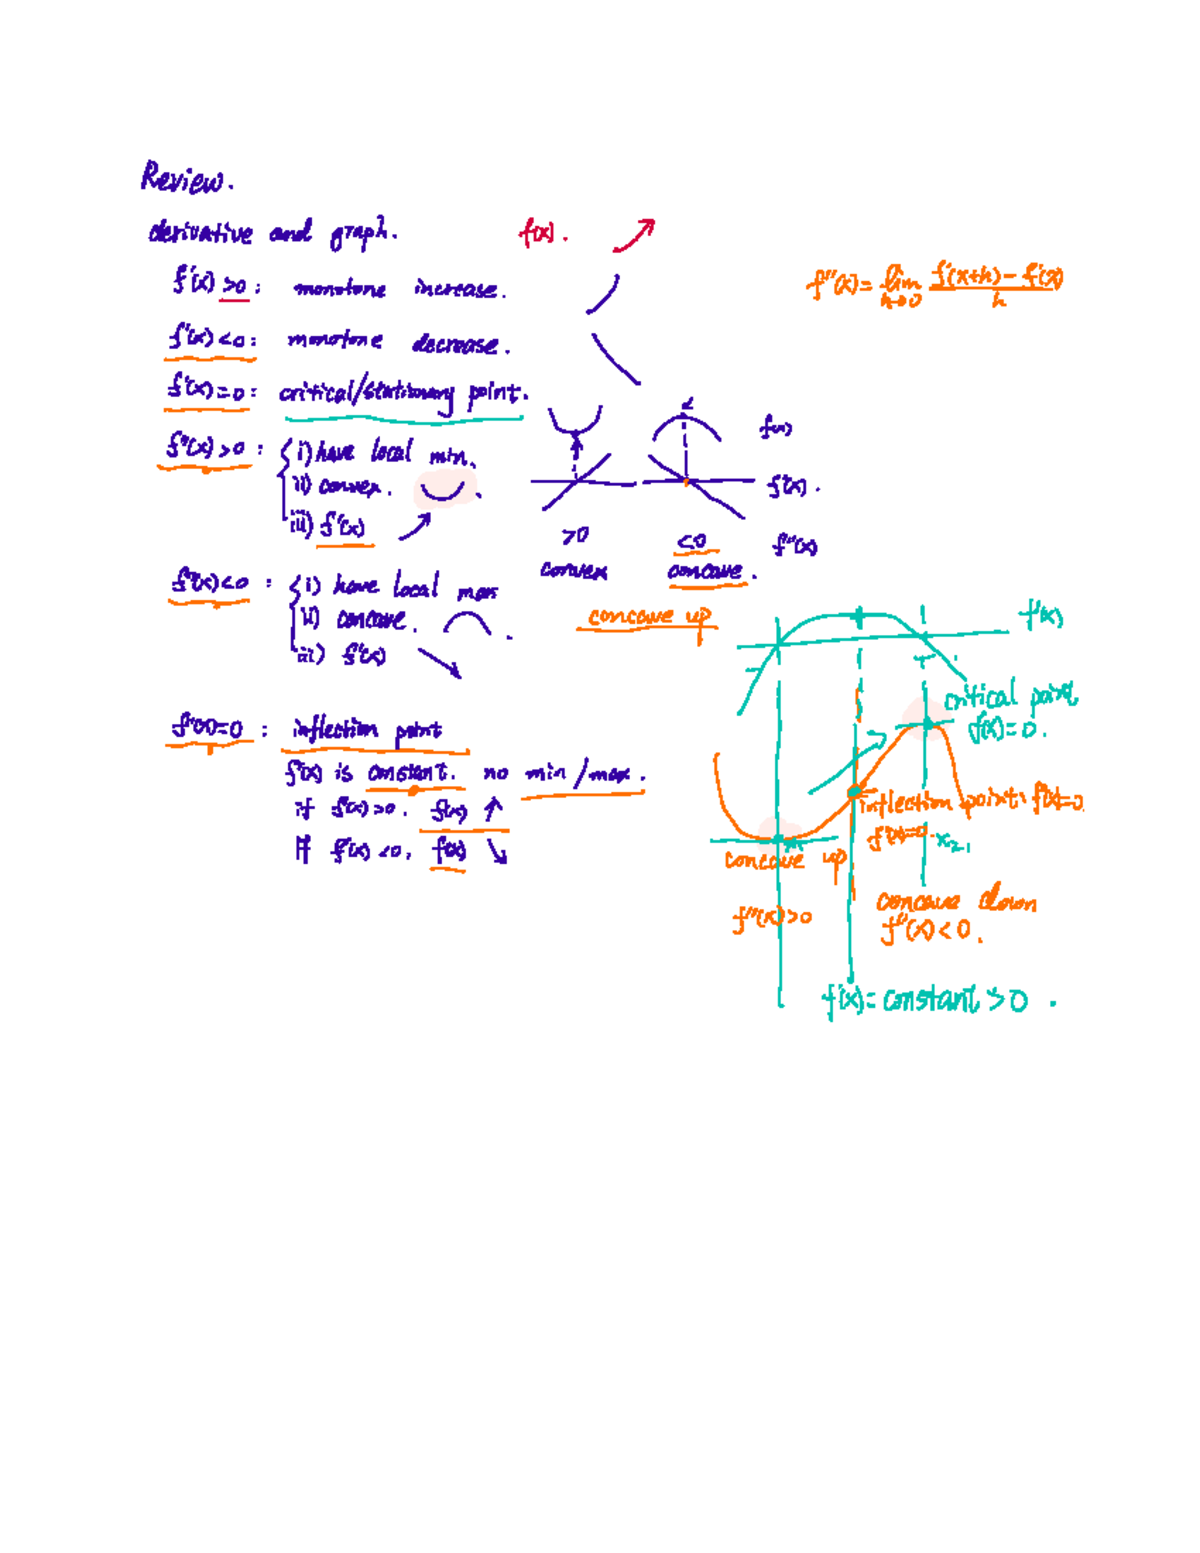 Review.
derivative and graph. f(x).
f'(x) >0 : monotone increase.
f''(x) = lim h→0 f'(x+h) - f'(x) / h
f'(x) <0 : monotone decrease.
f'(x) =0 : critical/stationary point.
f(x)
f''(x) >0 : i) have local min.
ii) convex.
f'(x).
iii) f'(x)
>0 <0 f''(x)
convex concave.
f''(x) <0 : i) have local max
ii) concave.
iii) f'(x)
concave up
f'(x)
critical point
f'(x)=0.
f''(x)=0 : inflection point
f'(x) is constant. no min/max.
if f'(x) >0. f(x) ↑
If f'(x) <0, f(x) ↘
inflection point: f''(x)=0
x2,
concave up
f''(x)>0
concave down
f''(x)<0.
f'(x)=constant >0 .